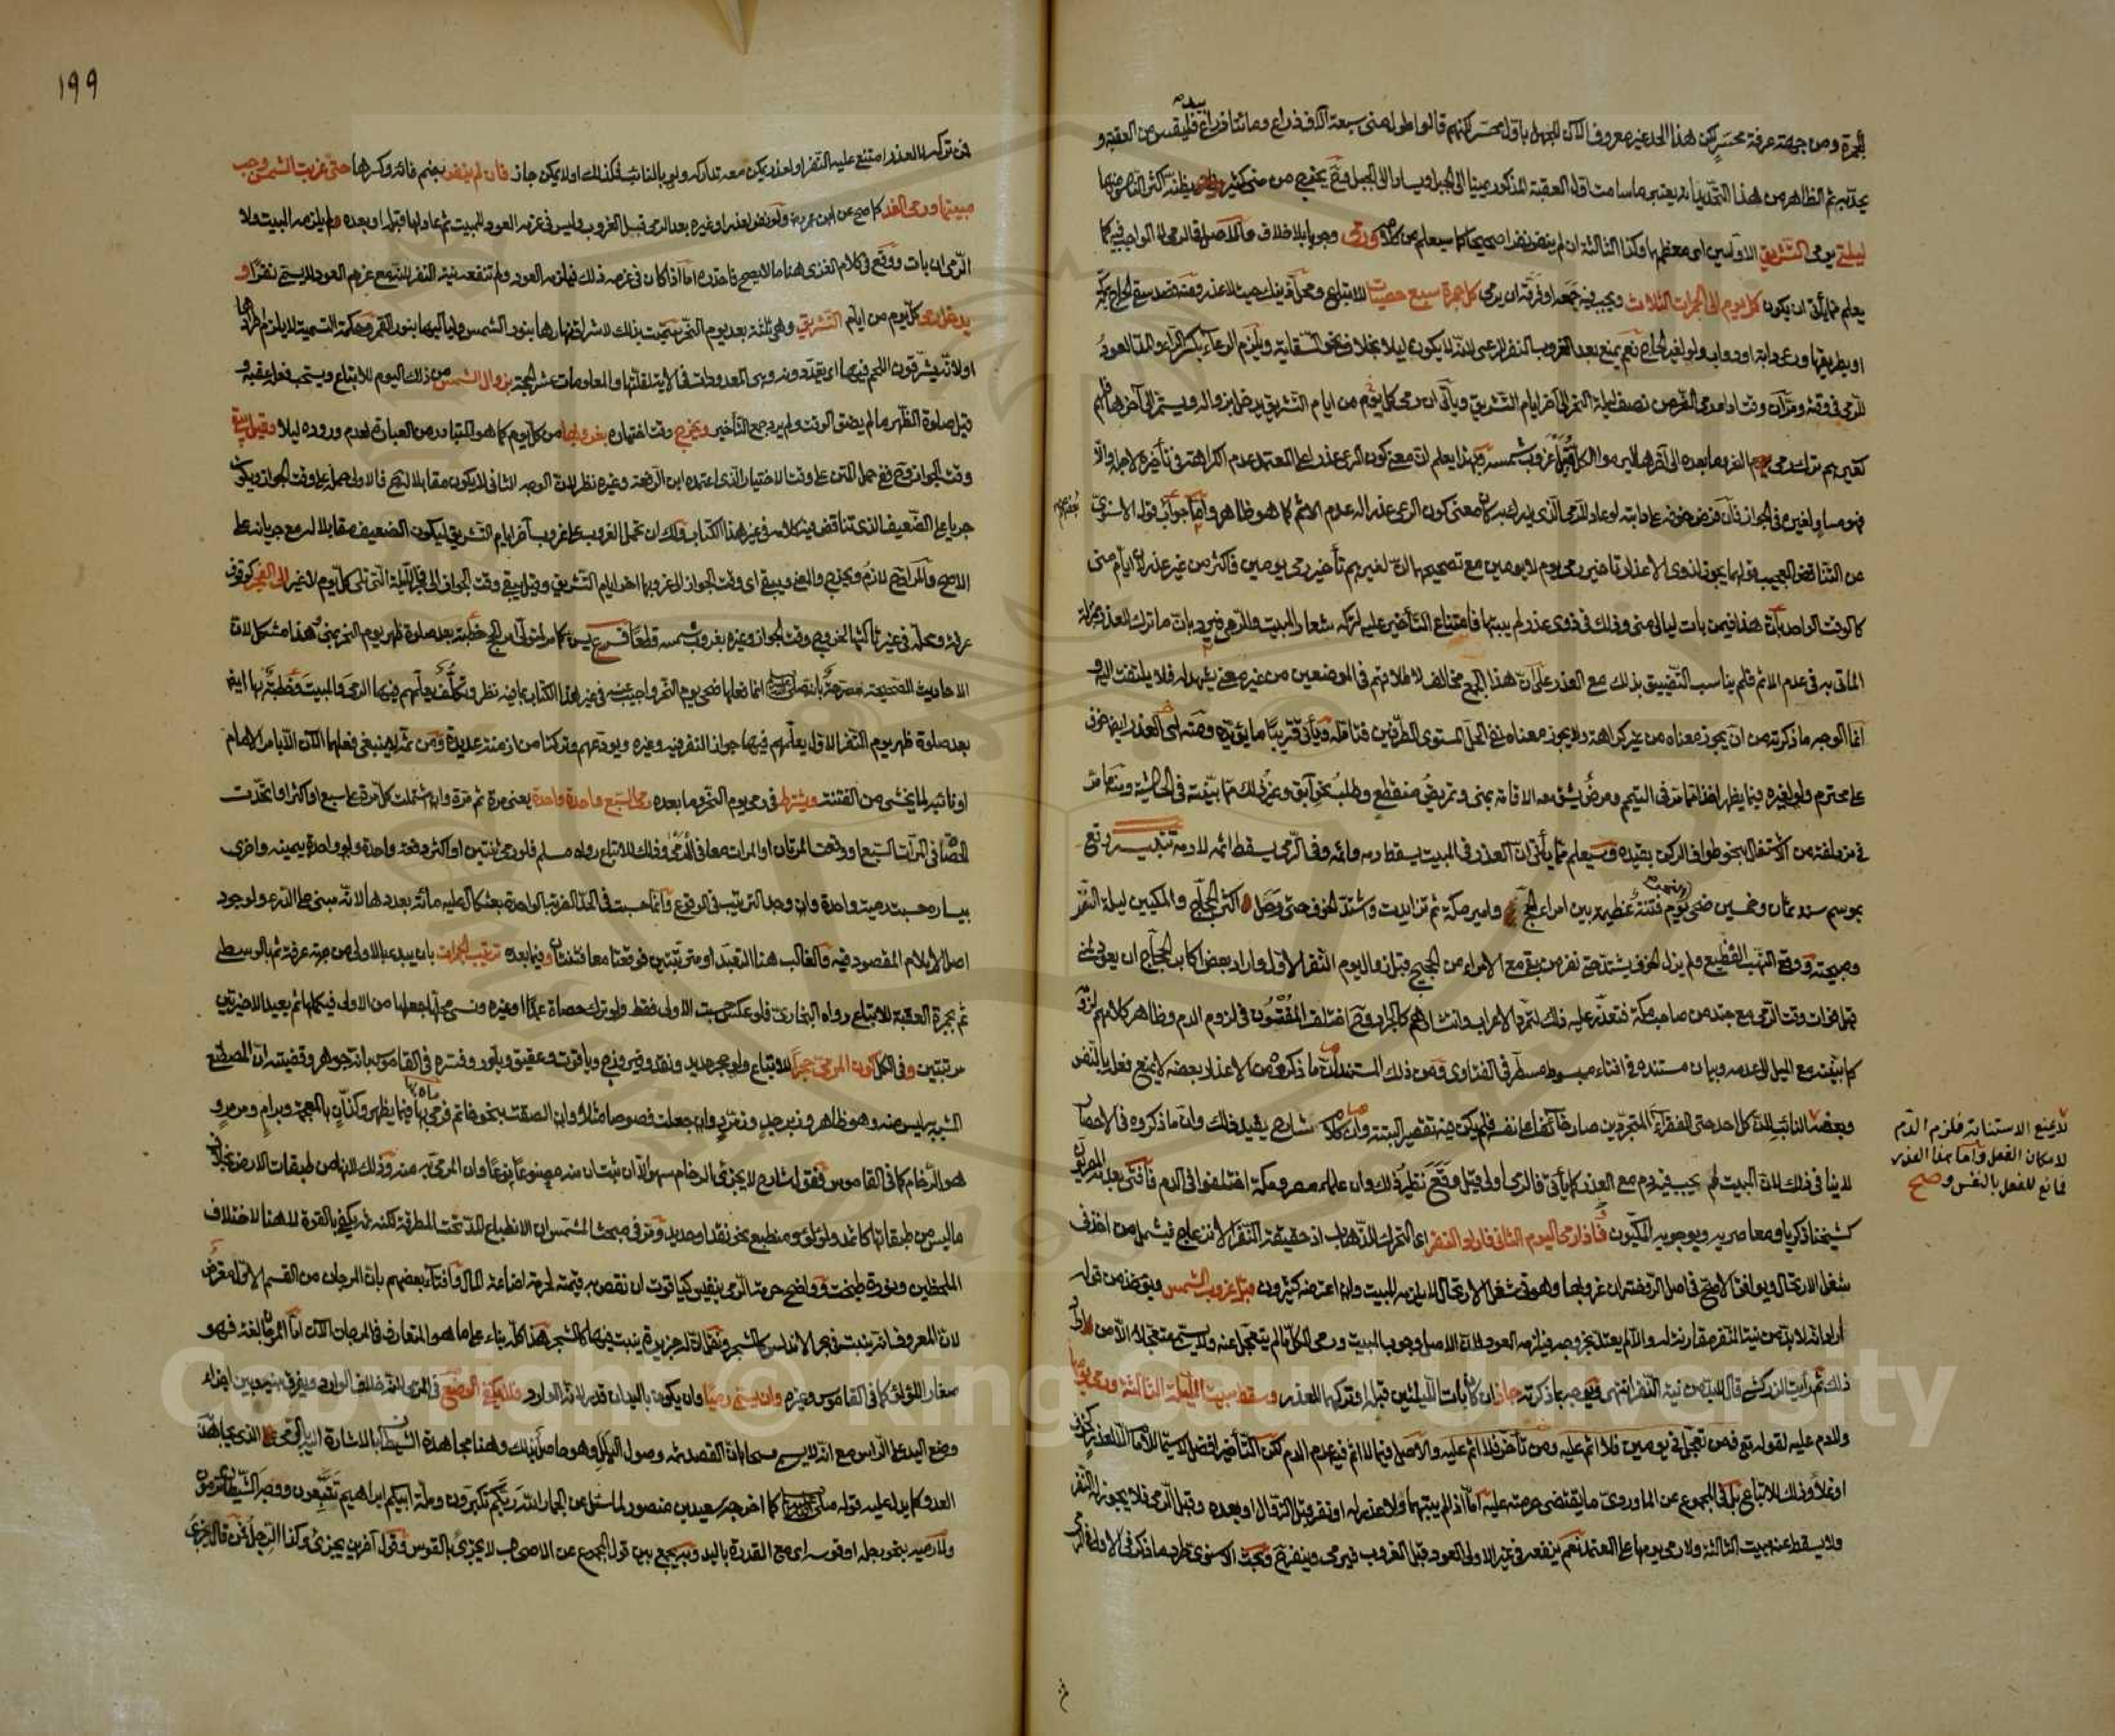 للجمرة ومن جهة عرفة محسر لكن هذا الحد غير معروف الآن للجهل بأول محسر لكنهم قالوا طول منى سبعة آلاف ذراع ومائتا ذراع فليقس من العقبة و
بيده
يحد به ثم الظاهر من هذا التحديد انه يعتبر ما سامت اول العقبة المذكور يمينا الى الجبل ويسارا الى الجبل وح يخرج من منى كثير يظنه أكثر الناس منها
ليلتي يومي التشريق الاولين اى معظمها وكذا الثالثة ان لم ينفر نفرا صحيحا كما سيعلم من كلامه ورمى وجوبا بلا خلاف
يعلم مما يأتى ان يكون كل يوم الى الجمرات الثلاث ويجب فيه كل جمرة سبع حصيات للاتباع
او بطريقها ورعي دابة او دواب ولو لغير الحاج نعم يمتنع بعد الغروب النفر للرعي لانه لا يكون ليلا بخلاف نحو السقاية ويلزم الرعاء بكسر الراء والمد العود
للرمي في وقته ومر ان وقت اداء رمي النحر من نصف ليلة النحر الى آخر ايام التشريق ويأتى ان رمي كل يوم من ايام التشريق يدخل بزواله ويستمر الى آخرها فلهم
كغيرهم ترك رمي يوم النحر وما بعده الى آخرها ليرموا الكل قبل غروب شمسه وبهذا يعلم ان معنى كون الرعي عذرا على المعتمد عدم الكراهة فى تأخيره لاجله والا
فهو مساو لغيره فى الجواز فان فرض خوفه على دابته لو عاد للرمي الذي يدركه كان معنى كون الرعي عذرا له عدم الاثم كما هو ظاهر واما جواب قول الاسنوى
من التناقض العجيب قولهما يجوز لذوي الاعذار تاخير رمي يوم لا يومين مع تصحيحهما ان لغيرهم تأخير رمي يومين فأكثر من غير عذر لان ايام منى
كالوقت الواحد بان هذا فيمن بات ليالى منى وذلك فى ذوى عذر لم يبيتوا فامتناع التأخير عليهم لتركه شعار المبيت والرمي فيرد بان ما ترك للعذر بمنزلة
المأتى به فى عدم الاثم فلم يناسب التضييق بذلك مع العذر على ان هذا الجمع مخالف لاطلاقهم فى الموضعين من غير معنى يشهد له فلا يلتفت اليه و
انما الوجه ما ذكرته من ان يجوز معناه من غير كراهة ولا يجوز معناه نفى الحل المستوى الطرفين فتامله ويأتى قريبا ما يؤيده ومن العذر ايضا خوف
على محترم ولو لغيره فيما يظهر اخذا مما مر فى التيمم ومرض يشق معه الاقامة بمنى وتمريض منقطع وطلب نحو آبق وغير ذلك مما بينته فى الحاشية ومنها مر
فى مزدلفة من الاشتغال بنحو طواف الركن بقيده وسيعلم مما يأتى ان العذر فى المبيت يسقط دمه واثمه وفى الرمي يسقط اثمه لا دمه تنبيه وقع
بموسم سنة ثمان وخمسين ضحى يوم فتنة عظيمة بين امراء الحج وامير مكة ثم تزايدت واشتد الخوف حتى رحل اكثر الحجاج والمكيين ليلة النفر
وصبيحته ووقع النهب الفظيع ولم يزل الخوف يشتد حتى نفر من بقي مع الامراء من الحجيج قبل زوال يوم النفر الاول واراد بعض اكابر الحجاج ان يعود لمنى
قبل فوات وقت الرمي مع جند من صاحب مكة فتعذر عليه ذلك لتمرد الاعراب وانتشارهم كالجراد وح اختلف المفتون فى لزوم الدم وظاهر كلامهم لزومه
كما بينته مع الميل الى عدمه وبيان مستنده فى افتاء مبسوط مسطر فى الفتاوى ومن ذلك المستند ان ما ذكروه من الاعذار بعضه لا يمنع فعله بالنفس
وبعضه النائب لان كل احد حتى الفقراء المتجردين صار خائفا على نفسه فلم يكن منه تقصير البتة وان كلام شارح يفيد ذلك وان ما ذكروه فى الاحصار
لا ينافى ذلك لان المبيت لم يجب فيه دم مع العذر كما يأتى فالرمي اولى وقيل وقع نظير ذلك وان علماء مصر ومكة اختلفوا فى الدم فأفتى بعدم المصريون
كشيخنا ذكريا ومعاصريه وبوجوبه المكيون فاذا رمى اليوم الثانى فاراد النفر اى التحرك للذهاب اذ حقيقة النفر الانزعاج فيشمل من اخذ فى
شغل الارتحال ويوافق الاصح فى اصل الروضة ان غروبها وهو فى شغل الارتحال لا يلزمه المبيت وان اعترضه كثيرون قبل غروب الشمس ويؤخذ من قوله
اراد انه لا بد من نية النفر مقارنة له والا لم يعتد بخروجه فيلزمه العود لان الاصل وجوب المبيت ورمي الكل ما لم يتعجل عنه ولا يسمى متعجلا الا من اراد
ذلك ثم رأيت الزركشى قال لا بد من نية النفر جاز ان بات الليلتين قبله او تركهما لعذر وسقط مبيت الليلة الثالثة ورمي يومها
ولا دم عليه لقوله تع فمن تعجل فى يومين فلا اثم عليه ومن تأخر فلا اثم عليه والاصل فيما لا اثم فيه عدم الدم لكن التأخير افضل لاسيما للامام الا لعذر كخوف
او غلاء وذلك للاتباع بل فى المجموع عن الماوردى ما يقتضى حرمته عليه اما اذا لم يبتهما ولا عذر له او نفر قبل الزوال او بعده وقبل الرمي فلا يجوز له النفر
ولا يسقط عنه مبيت الثالثة ولا رمي يومها على المعتمد نعم ينفعه فى غير الاولى العود قبل الغروب فيرمى وينفر ح وبحث الاسنوى طرد ما ذكر فى الاولى فى الرمي
لا يمنع الاستنابة فلزم الدم
لامكان الفعل واما هذا العذر
فمانع للفعل بالنفس و صح
١٩٩
فمن تركه لا لعذر امتنع عليه النفر او لعذر يمكن معه تداركه ولو بالنائب فكذلك او لا يمكن جاز فان لم ينفر بضم فائه وكسرها حتى غربت الشمس وجب
مبيتها ورمى الغد كما صح عن ابن عمر ولو نفر لعذر او غيره بعد الرمى قبل الغروب وليس فى عزمه العود للمبيت ثم عاد لها قبله او بعده لم يلزمه المبيت ولا
الرمى ان بات ووقع فى كلام الغزى هنا ما لا يصح فاحذره اما اذا كان فى عزمه ذلك فيلزمه العود ولم تنفعه نية النفر لانه مع عزم العود لا يسمى نفرا و
يدخل رمى كل يوم من ايام التشريق وهى ثلثة بعد يوم النحر سميت بذلك لاشراق نهارها بنور الشمس ولياليها بنور القمر وحكمة التسمية لا يلزم اطرادها
اولان يشرقون اللحم فيها اى يقددونه وهى المعدودات فى الاية لقلتها والمعلومات عشر الحجة بزوال الشمس من ذلك اليوم للاتباع ويستحب فعله عقبه و
قبل صلوة الظهر ما لم يضق الوقت ولم يرد جمع التأخير ويخرج وقت اختياره بغروبها من كل يوم كما هو المتبادر من العبارة لعدم وروده ليلا وقيل يبقى
وقت الجواز وح فى حمل المتن على وقت الاختيار الذى اعتمده ابن الرفعة وغيره نظر لان الوجه الثانى لا يكون مقابلا لاصح فالاولى حمله على وقت الجواز ويكون
جريا على الضعيف الذى تناقض فيه كلامه فى غير هذا الكتاب ولك ان تحمل الغروب على غروب آخر ايام التشريق ليكون الضعيف مقابلا له مع جريانه على
الاصح والى الفجر كوقوف
عرفة ومحله فى غير ثالثها لخروج وقت الجواز وغيره بغروب شمسه قطعا فرع يسن كما مر لمتولى امر الحج خطبة بعد صلوة ظهر يوم النحر بمنى هذا مشكل لان
الاحاديث الصحيحة مصرحة بانه صلى الله عليه وسلم انما فعلها ضحى يوم النحر واجبت عنه فى غير هذا الكتاب بما فيه نظر وتكلف يعلمهم فيها الرمي والمبيت وخطبة بها ايضا
بعد صلوة ظهر يوم النفر الاول يعلمهم فيها جواز النفر فيه وغيره ويودعهم وتركتا من ازمنة عديدة ومن ثم لا ينبغى فعلها الآن الا بامر الامام
او نائبه لما يخشى من الفتنة ويشترط فى رمى يوم النحر وما بعده رمى السبع واحدة واحدة يعنى مرة ثم مرة وان اشتملت كل مرة على سبع او اكثر او اتحدت
الحصاة فى المرات السبع او وقعت المرتان او المرات معا فى المرمى وذلك للاتباع رواه مسلم فلو رمى ثنتين او اكثر دفعة واحدة ولو واحدة بيمينه واخرى
بيساره حسبت رمية واحدة وان وجد الترتيب فى الوقوع وانما حسبت فى الحد الضربة الواحدة بعثكال عليه مائة بعددها لانه مبنى على الدرء ولوجود
اصل الايلام المقصود فيه والغالب هنا التعبد او مترتبتين فوقعتا معا فثنتان وفيما بعده ترتيب الجمرات بان يبدء بالاولى من جهة عرفة ثم بالوسطى
ثم بجمرة العقبة للاتباع رواه البخارى فلو عكس حسبت الاولى فقط ولو ترك حصاة عمدا او غيره ونسى محلها جعلها من الاولى فيكملها ثم يعيد الاخيرتين
مرتبتين وفى الكل كون المرمى حجرا للاتباع ولو حجر حديد ونقد وفيروزج وياقوت وعقيق وبلور وفسره فى القاموس بانه جوهر وقضيته ان المصطنع
الشبيه ليس منه وهو ظاهر وزبرجد وزمرد وان جعلت فصوصا مثلا وان الصقت بنحو خاتم فرمى بها فيما يظهر وكذان بالمعجمة وبرام ومرمر و
هو الرخام كما فى القاموس فقول شارح لا يجزئ الرخام سهو الا ان ثبت ان منه مصنوعا ونوعا وان المرمى به منه وذلك لانها من طبقات الارض بخلاف
ما ليس من طبقاتها كاثمد ولؤلؤ ومنطبع نحو نقد او حديد ومر فى مبحث المشمس ان الانطباع المد تحت المطرقة لكنه ثم يكفى بالقوة لا هنا لاختلاف
الملحظين ونورة طبخت وواضح حرمة الرمى بنفيس كياقوت ان نقص به قيمته لحرمة اضاعة المال وافتاء بعضهم بان المرجان من القسم الاول مفروض
لان المعروف انه ينبت فى بحر الاندلس كالشجر ونقل انه بجزيرة ينبت فيها كالشجر هذا كله بناء على ما هو المتعارف فى المرجان الآن اما المرجان لغة فهو
صغار اللؤلؤ كما فى القاموس وغيره وان يسمى رميا وان يكون باليد ان قدر لانه الوارد فلا يكفى الوضع فى المرمى لانه خلاف الوارد ويفرق بينه وبين اجزاء
وضع اليد على الراس مع انه لا يسمى مسحا بان القصد ثم وصول البلل وهو حاصل بذلك وهنا مجاهدة الشيطان بالاشارة اليه بالرمى الذى يجاهد به
العدو كما يدل عليه قوله صلى الله عليه وسلم كما اخرجه سعيد بن منصور لما سئل عن الجمار الله ربكم تكبرون وملة ابيكم ابراهيم تتبعون ووجه الشيطان ترمون
ولا رميه بنحو رجله او قوسه اى مع القدرة باليد وبه يجمع بين قول المجموع عن الاصحاب لا يجزئ بالقوس وقول آخرين يجزئ وكذا الرجل فمن قال يجزئ